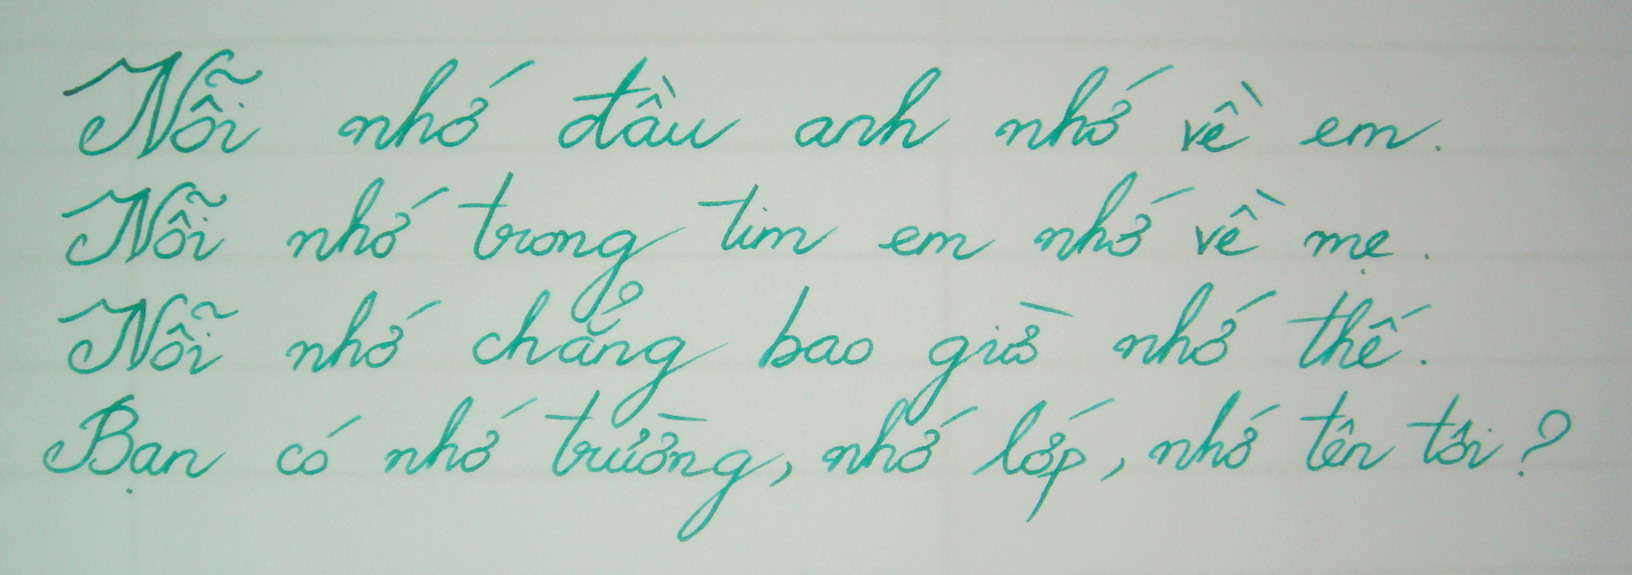 Nỗi nhớ đầu anh nhớ về em.
Nỗi nhớ trong tim em nhớ về mẹ.
Nỗi nhớ chẳng bao giờ nhớ thế.
Bạn có nhớ trường, nhớ lớp, nhớ tên tôi?